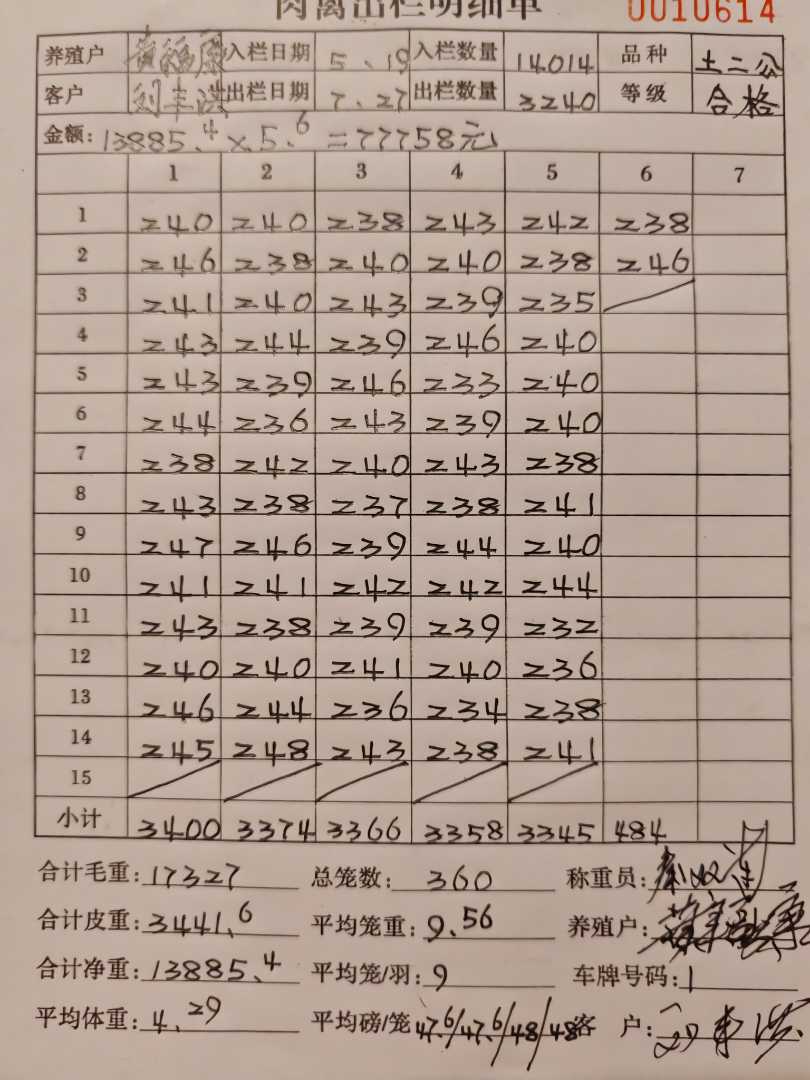 肉禽出栏明细单 0010614
养殖户 黄福原 入栏日期 5、19 入栏数量 14014 品种 土二公
客户 刘丰洪 出栏日期 7、27 出栏数量 3240 等级 合格
金额: 13885.4 × 5.6 = 77758元
1 2 3 4 5 6 7
1 240 240 238 243 242 238
2 246 238 240 240 238 246
3 241 240 243 239 235
4 243 244 239 246 240
5 243 239 246 233 240
6 244 236 243 239 240
7 238 242 240 243 238
8 243 238 237 238 241
9 247 246 239 244 240
10 241 241 242 242 244
11 243 238 239 239 232
12 240 240 241 240 236
13 246 244 236 234 238
14 245 248 243 238 241
15
小计 3400 3374 3366 3358 3345 484
合计毛重: 17327 总笼数: 360 称重员:
合计皮重: 3441.6 平均笼重: 9.56 养殖户:
合计净重: 13885.4 平均笼/羽: 9 车牌号码: 1
平均体重: 4.29 平均磅/笼 47.6/47.6/48/48 客 户: